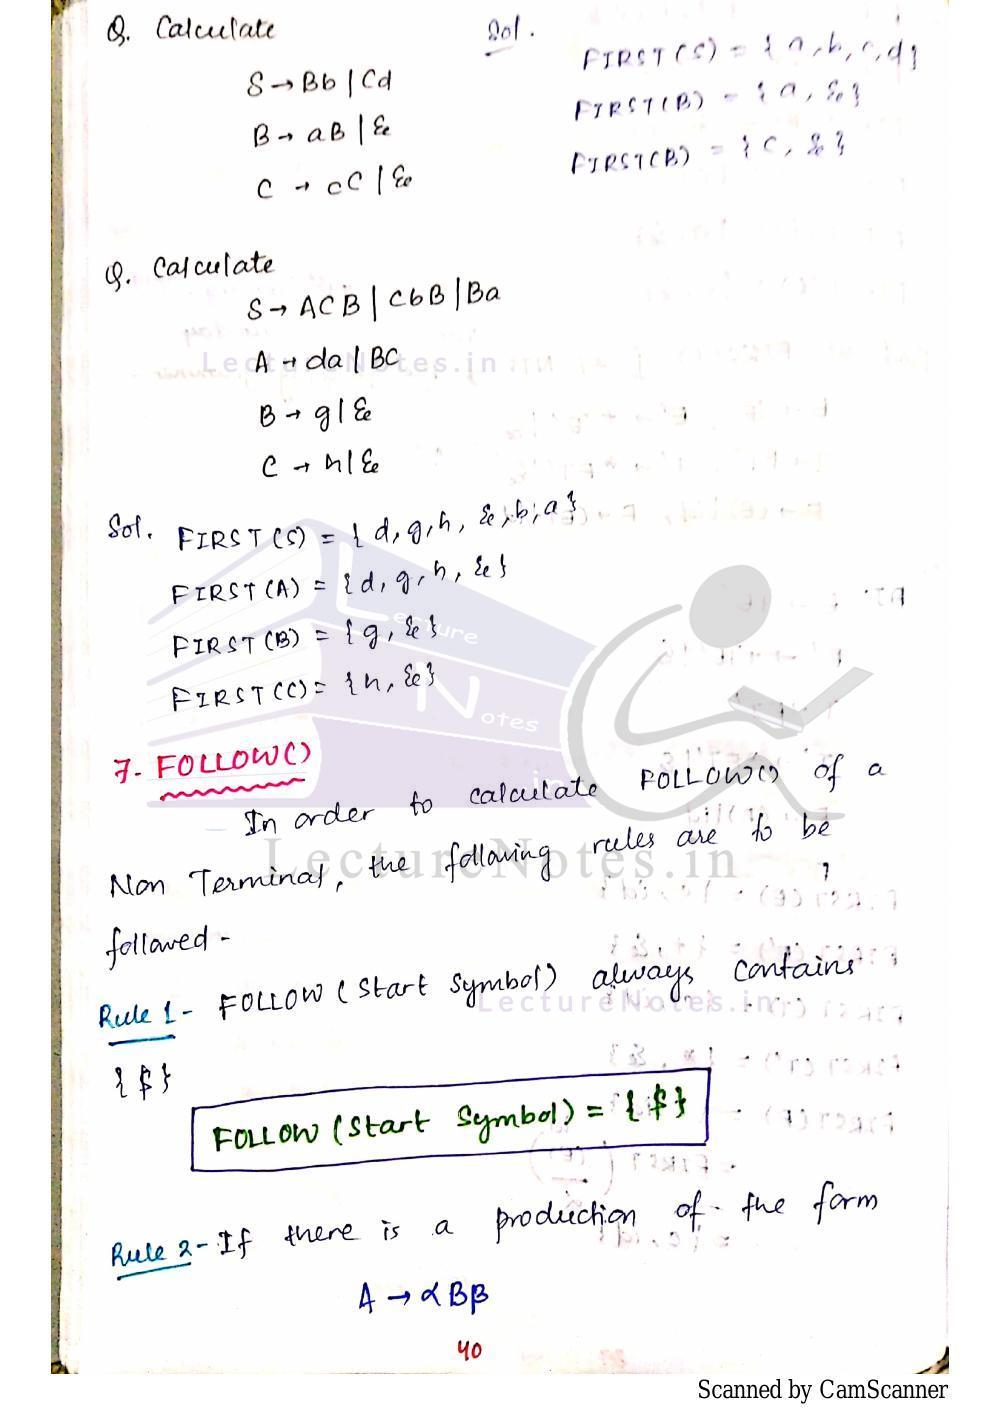 Q. Calculate
S → Bb | Cd
B → aB | ε
C → cC | ε
Sol.
FIRST(S) = { a, b, c, d }
FIRST(B) = { a, ε }
FIRST(B) = { c, ε }
Q. Calculate
S → ACB | CbB | Ba
A → da | BC
B → g | ε
C → h | ε
LectureNotes.in
Sol. FIRST(S) = { d, g, h, ε, b, a }
FIRST(A) = { d, g, h, ε }
FIRST(B) = { g, ε }
FIRST(C) = { h, ε }
Lecture
Notes
.in
7- FOLLOW()
In order to calculate FOLLOW() of a
Non Terminal, the following rules are to be
LectureNotes.in
followed -
Rule 1- FOLLOW (Start Symbol) always contains
LectureNotes.in
{ $ }
FOLLOW (Start Symbol) = { $ }
Rule 2- If there is a production of the form
A → αBβ
40
Scanned by CamScanner